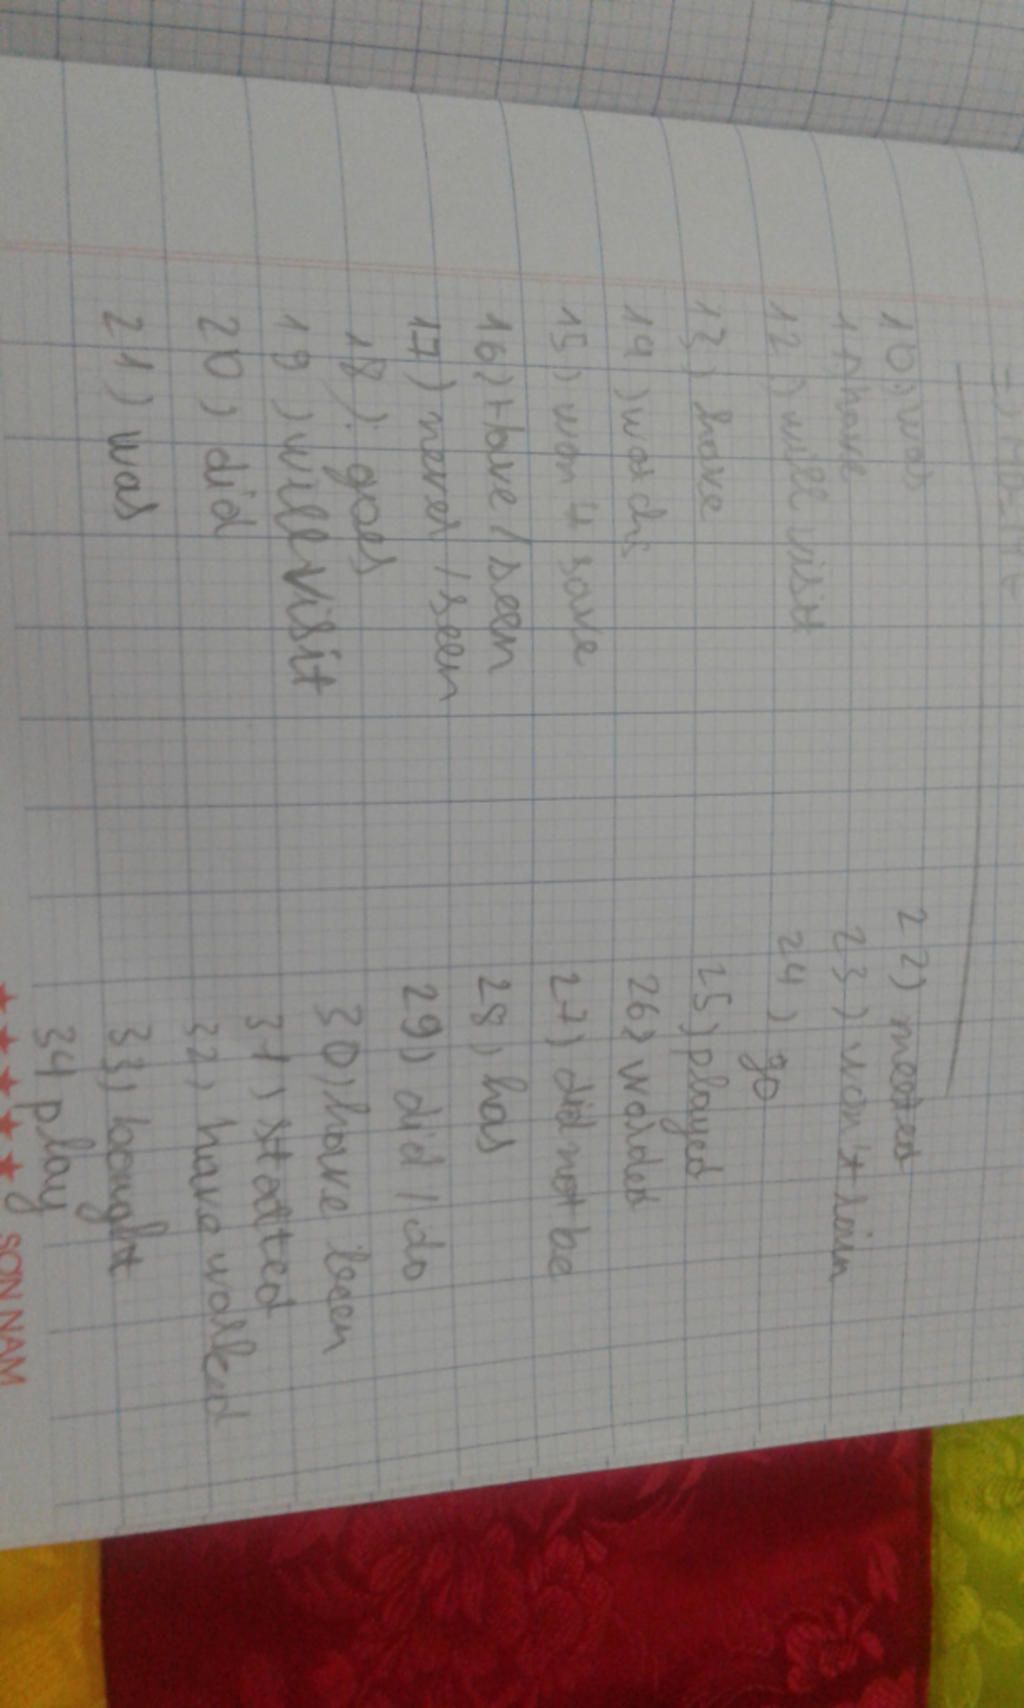 10) was
11) have
12) will visit
13) have
14) watch
15) won't save
16) Have / seen
17) never / seen
18) goes
19) will visit
20) did
21) was
22) meeted
23) won't
24) go
25) played
26) worked
27) did not be
28) has
29) did / do
30) have been
31) started
32) have walked
33) bought
34 play
SON NAM